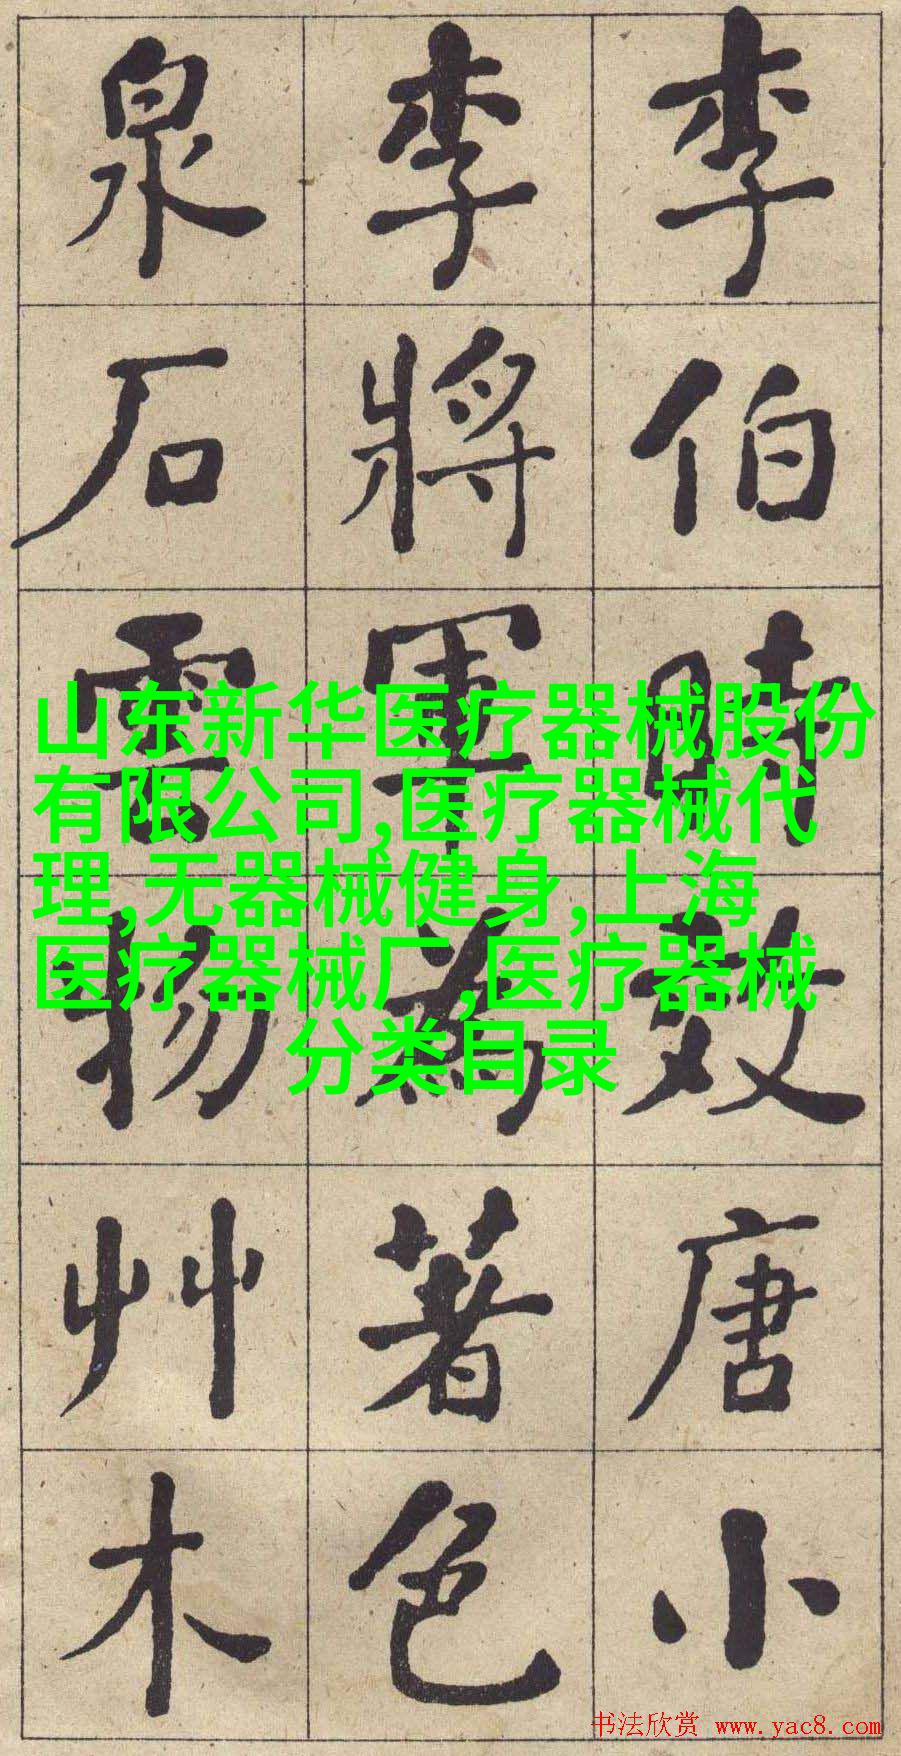 李伯時效唐小
李將軍為著色
泉石雲物艸木
山东新华医疗器械股份
有限公司,医疗器械代
理,无器械健身,上海
医疗器械厂,医疗器械
分类目录
书法欣赏 www.yac8.com